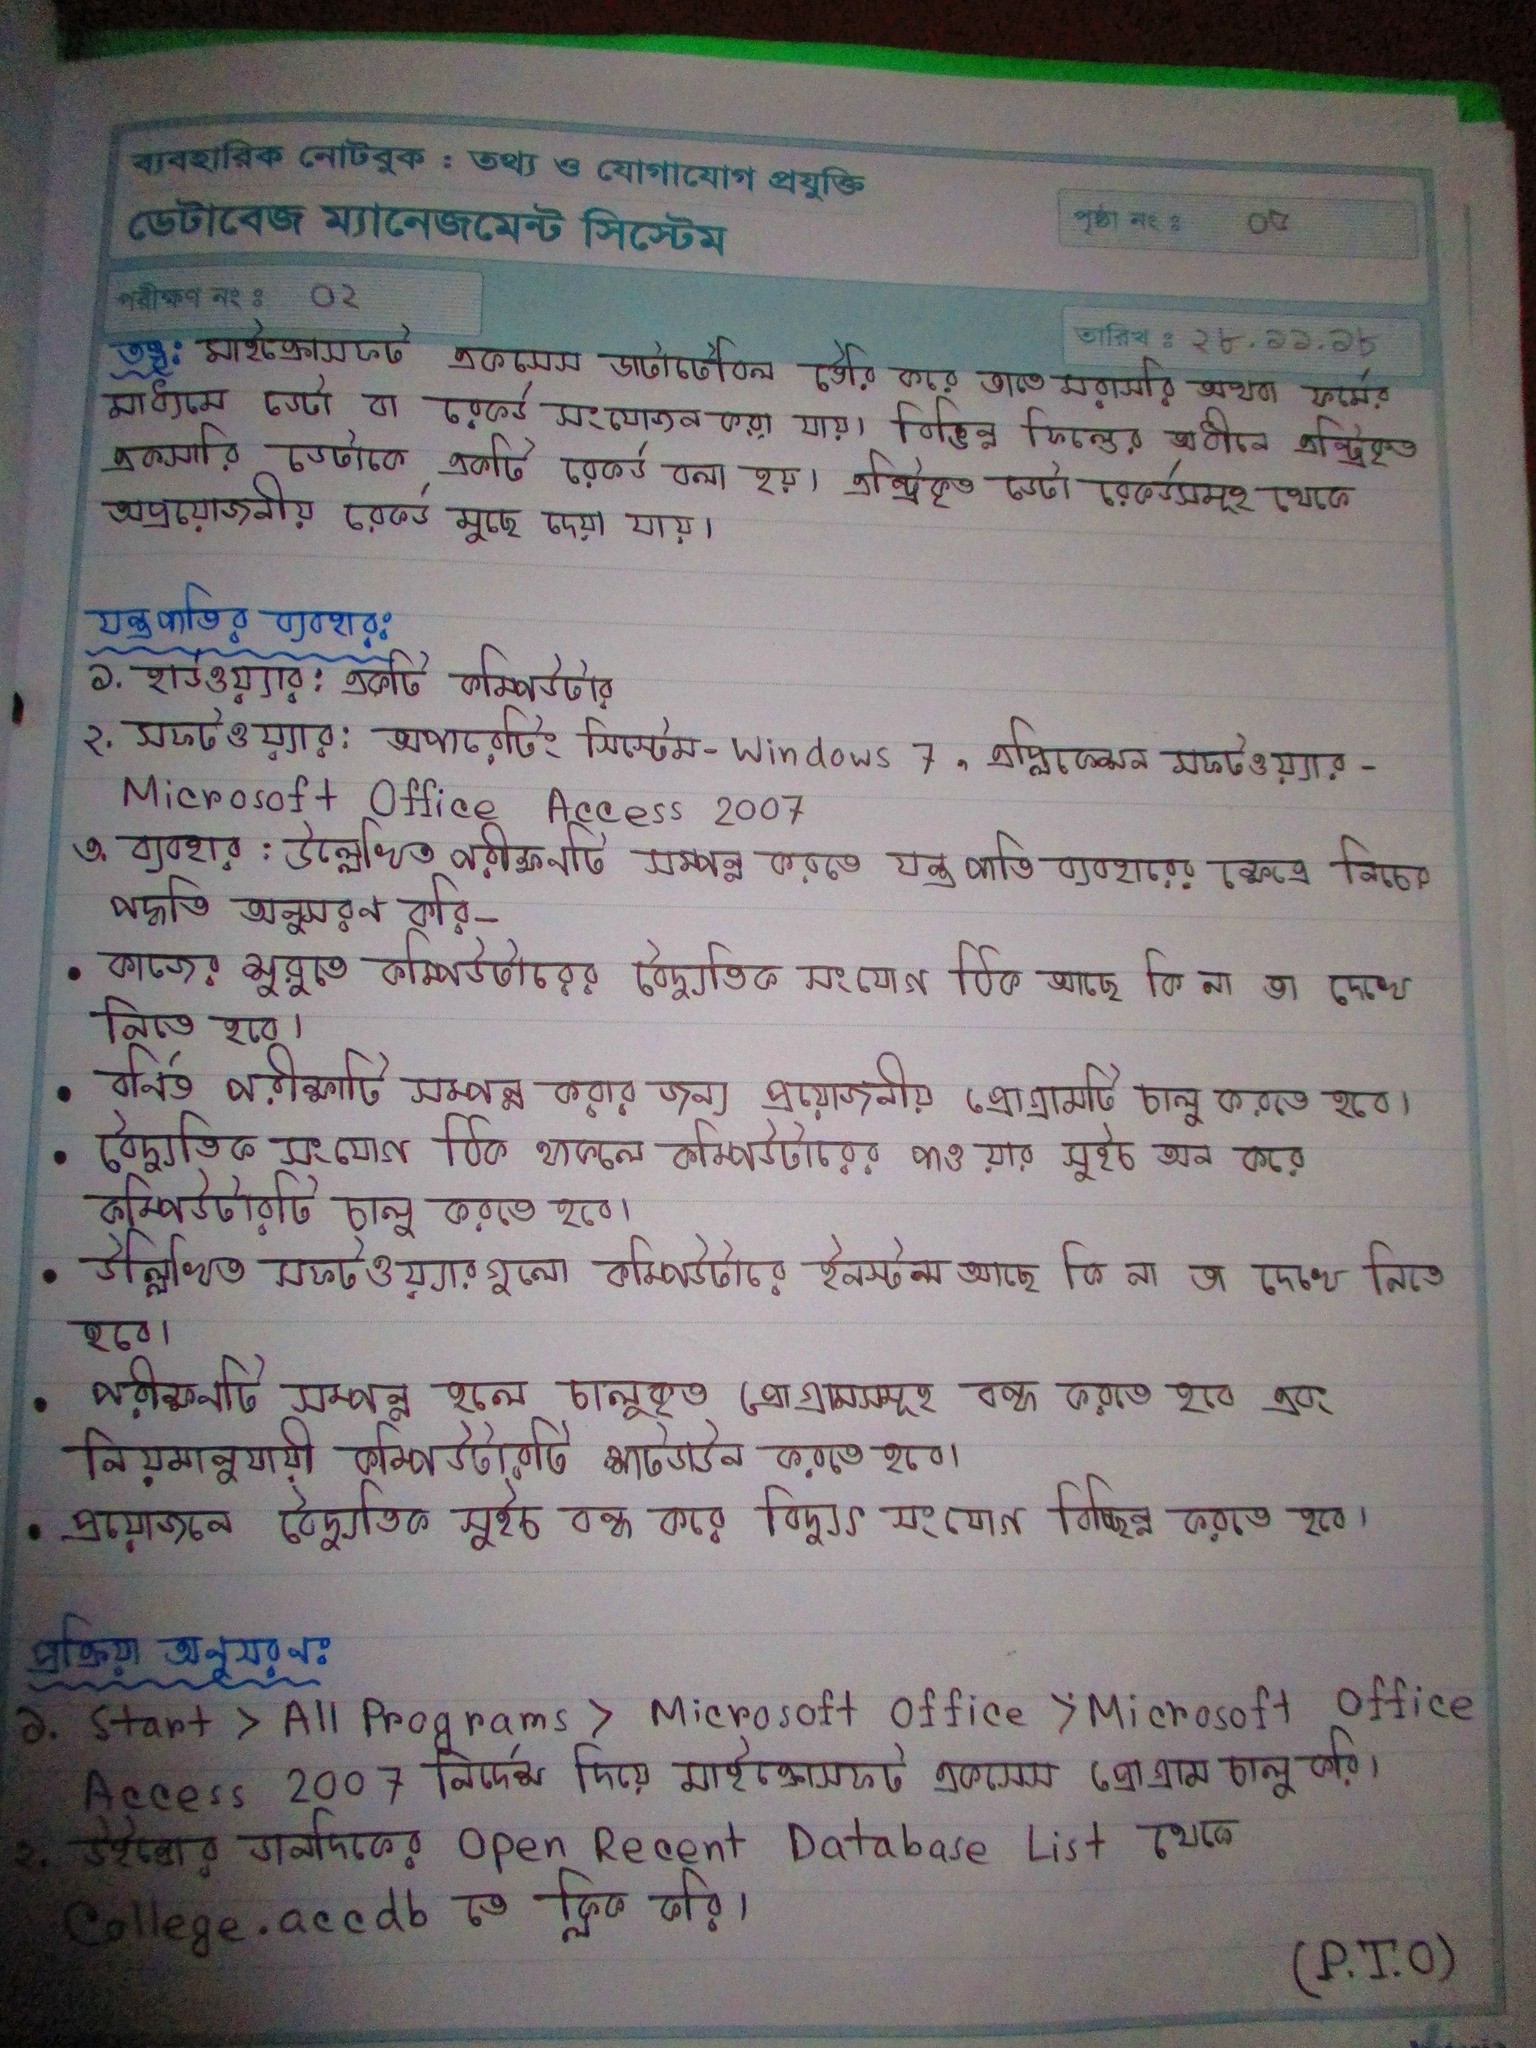 ব্যবহারিক নোটবুক : তথ্য ও যোগাযোগ প্রযুক্তি
ডেটাবেজ ম্যানেজমেন্ট সিস্টেম
পৃষ্ঠা নং :
পরীক্ষণ নং : 02
তারিখ : ২৮.১১.১৮
তত্ত্ব: মাইক্রোসফট একসেস ডাটাটেবিল তৈরি করে তাতে সরাসরি অথবা ফর্মের
মাধ্যমে ডেটা বা রেকর্ড সংযোজন করা যায়। বিভিন্ন ফিল্ডের অধীনে এন্ট্রিকৃত
একসারি ডেটাকে একটি রেকর্ড বলা হয়। এন্ট্রিকৃত ডেটা রেকর্ডসমূহ থেকে
অপ্রয়োজনীয় রেকর্ড মুছে দেয়া যায়।
যন্ত্রপাতির ব্যবহার:
১. হার্ডওয়্যার: একটি কম্পিউটার
২. সফটওয়্যার: অপারেটিং সিস্টেম- Windows 7, এপ্লিকেশন সফটওয়্যার-
Microsoft Office Access 2007
৩. ব্যবহার: উল্লেখিত পরীক্ষনটি সম্পন্ন করতে যন্ত্রপাতি ব্যবহারের ক্ষেত্রে নিচের
পদ্ধতি অনুসরণ করি-
• কাজের শুরুতে কম্পিউটারের বৈদ্যুতিক সংযোগ ঠিক আছে কি না তা দেখে
নিতে হবে।
• বর্নিত পরীক্ষাটি সম্পন্ন করার জন্য প্রয়োজনীয় প্রোগ্রামটি চালু করতে হবে।
• বৈদ্যুতিক সংযোগ ঠিক থাকলে কম্পিউটারের পাওয়ার সুইচ অন করে
কম্পিউটারটি চালু করতে হবে।
• উল্লিখিত সফটওয়্যারগুলো কম্পিউটারে ইনস্টল আছে কি না তা দেখে নিতে
হবে।
• পরীক্ষনটি সম্পন্ন হলে চালুকৃত প্রোগ্রামসমূহ বন্ধ করতে হবে এবং
নিয়মানুযায়ী কম্পিউটারটি শাটডাউন করতে হবে।
• প্রয়োজনে বৈদ্যুতিক সুইচ বন্ধ করে বিদ্যুৎ সংযোগ বিচ্ছিন্ন করতে হবে।
প্রক্রিয়া অনুসরণ:
১. Start > All Programs > Microsoft Office > Microsoft Office
Access 2007 নির্দেশ দিয়ে মাইক্রোসফট একসেস প্রোগ্রাম চালু করি।
২. উইন্ডোর ডানদিকের Open Recent Database List থেকে
College.accdb তে ক্লিক করি।
(P.T.O)